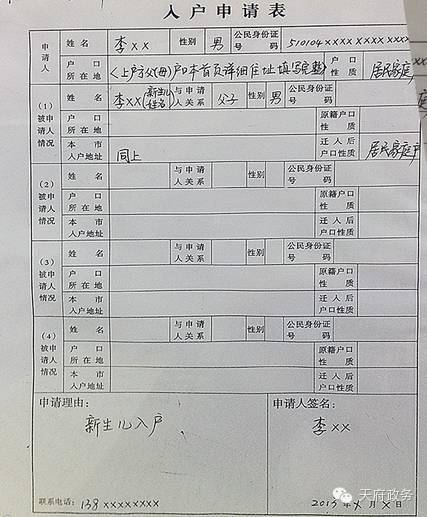 入户申请表
申请人 姓名 李XX 性别 男 公民身份证号码 510104XXXX XXXX XXXX
户口所在地 〈上户子父(母)户口本首页详细住址填写完整〉 户口性质 居民家庭
(1)被申请人情况 姓名 李XX(新生儿姓名) 与申请人关系 父子 性别 男 公民身份证号码
户口所在地 原籍户口性质
本市入户地址 同上 迁入后户口性质 居民家庭户
(2)被申请人情况 姓名 与申请人关系 性别 公民身份证号码
户口所在地 原籍户口性质
本市入户地址 迁入后户口性质
(3)被申请人情况 姓名 与申请人关系 性别 公民身份证号码
户口所在地 原籍户口性质
本市入户地址 迁入后户口性质
(4)被申请人情况 姓名 与申请人关系 性别 公民身份证号码
户口所在地 原籍户口性质
本市入户地址 迁入后户口性质
申请理由: 申请人签名:
新生儿入户. 李XX
联系电话: 138 XXXXXXXX 2013年X月X日
天府政务